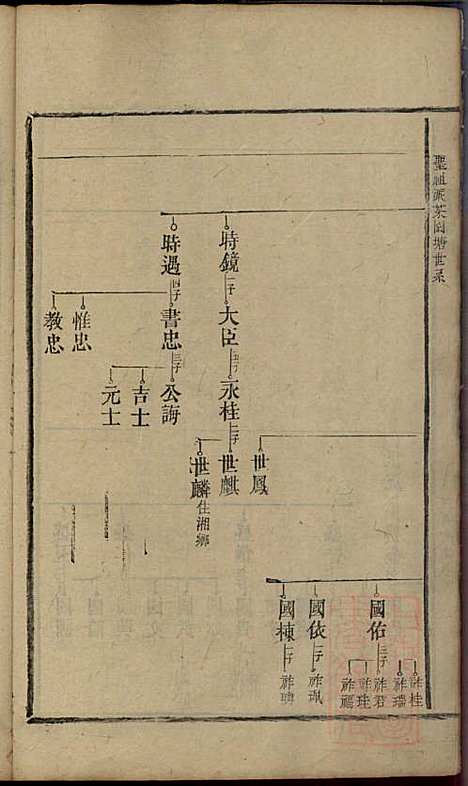 聖祖派茶園塘世系
時鏡 一子
大臣 五子
永桂 三子
世鳳
世麒
世麟 住湘鄉
時遇 四子
書忠 三子
惟忠
教忠
公誨
吉士
元士
國佑 三子
國依 一子
國棟 二子
祚桂
祚瑞
祚君
祚珪
祚珮